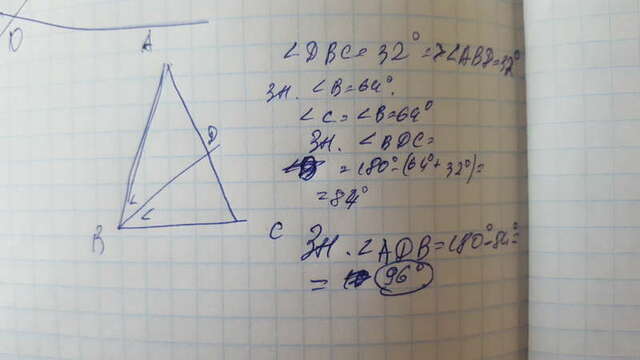 D
A
B
D
C
∠DBC = 32° => ∠ABD = 32°
Зн. ∠B = 64°.
∠C = ∠B = 64°
Зн. ∠BDC =
= 180° - (64° + 32°) =
= 84°
Зн. ∠ADB = 180° - 84° =
= 96°